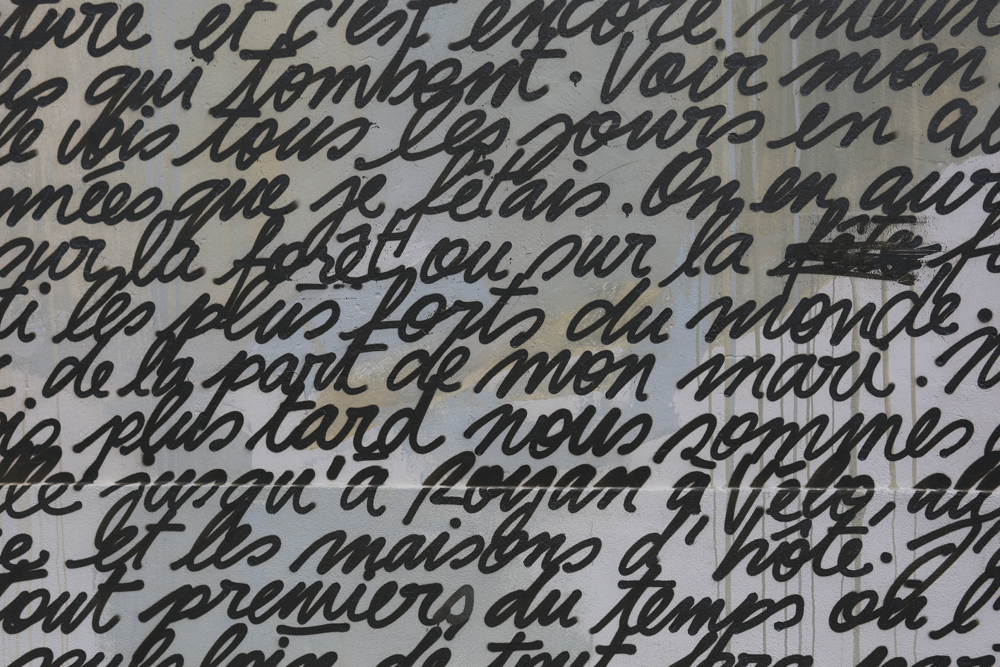 ture et c'est encore mieux
qui tombent. Voir mon
le vois tous les jours en
nnées que je fêtais. On en aur
sur la forêt ou sur la
ti les plus forts du monde.
de la part de mon mari.
is plus tard nous sommes
lée jusqu'à Royan à Vélo,
et les maisons d'hôte.
tout premiers du temps où l'
loin de tout